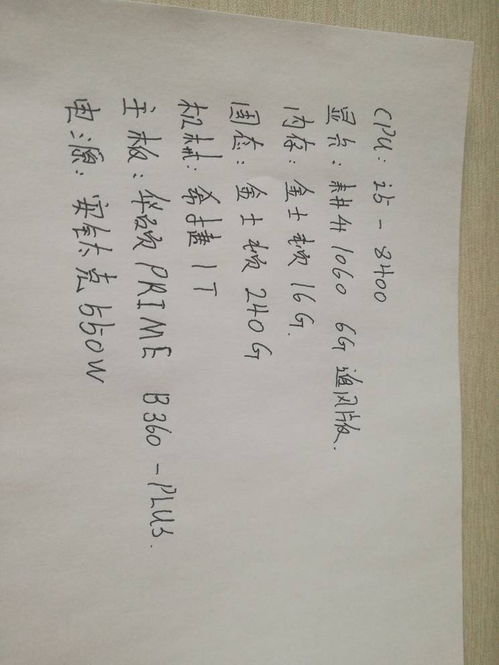 CPU: i5-8400
显卡: 耕升1060 6G 追风版.
内存: 金士顿 16G.
固态: 金士顿 240G
机械: 希捷 1T
主板: 华硕 PRIME B360-PLUS.
电源: 安钛克550W